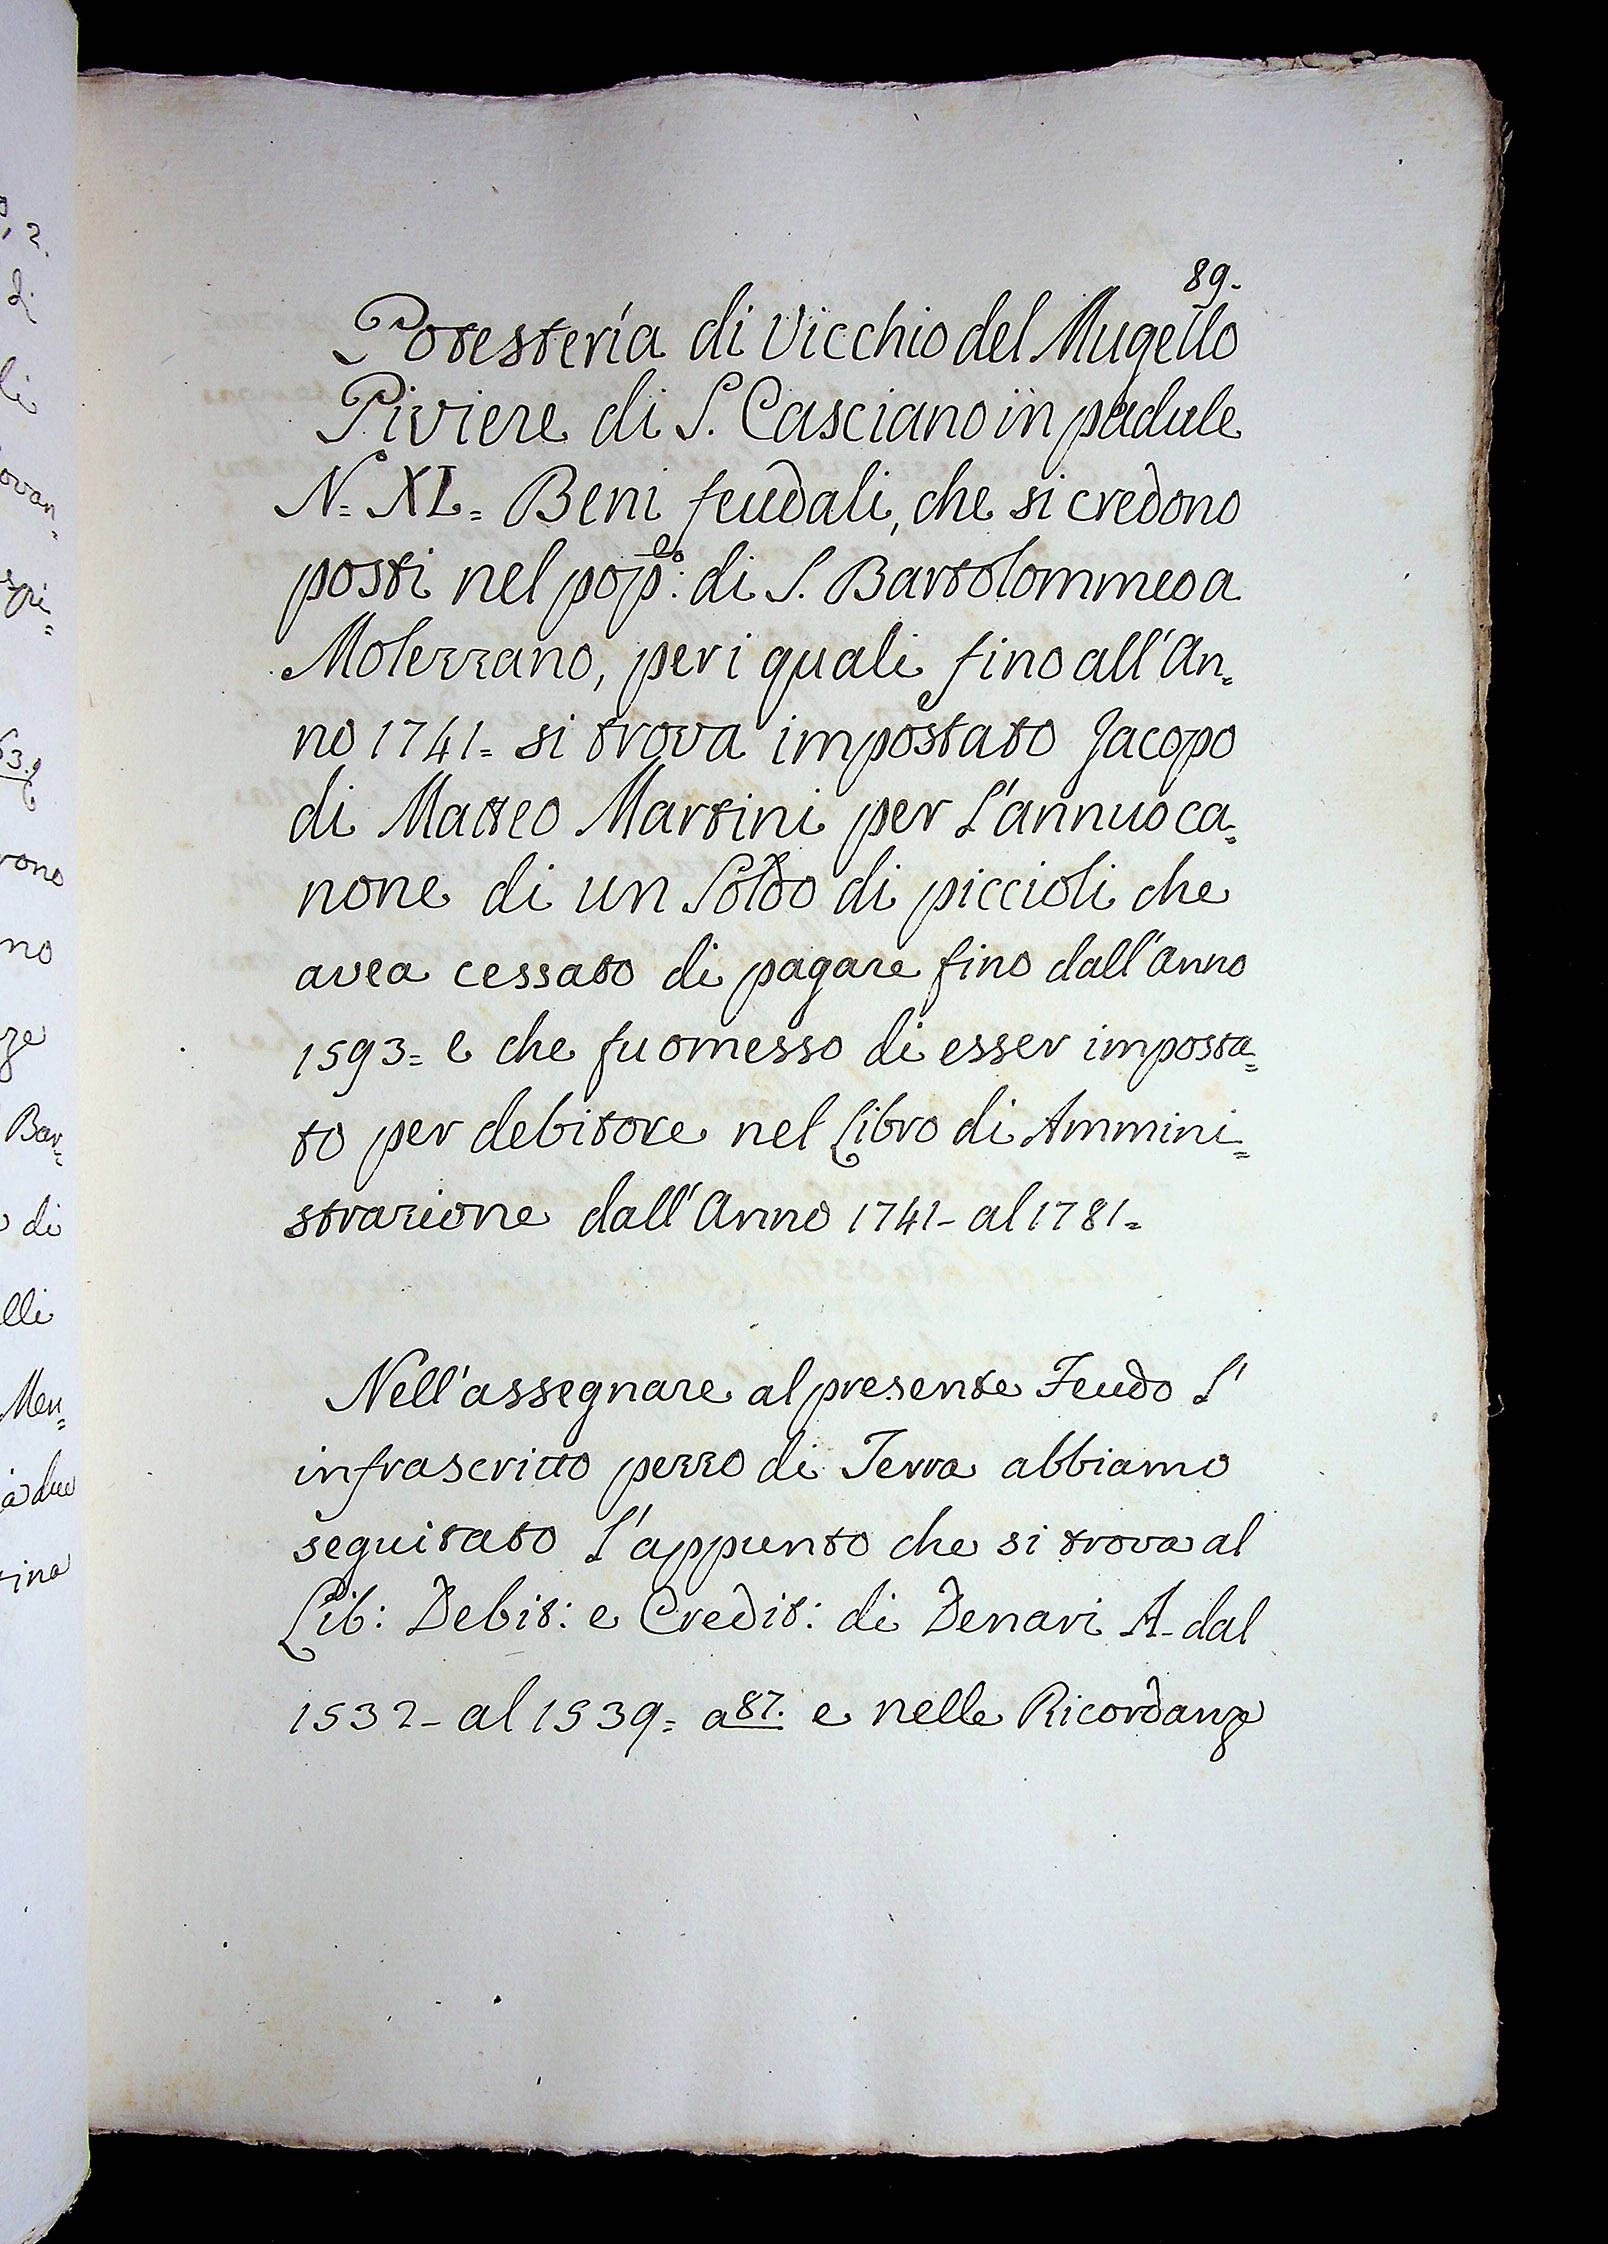 89.
Potesteria di Vicchio del Mugello
Piviere di S. Casciano in padule
N.° XL= Beni feudali, che si credono
posti nel pop:º di S. Bartolommeo a
Molezzano, per i quali fino all'An=
no 1741= si trova impostato Jacopo
di Matteo Martini per l'annuo ca=
none di un Soldo di piccioli che
avea cessato di pagare fino dall'Anno
1593= e che fu omesso di esser imposta=
to per debitore nel Libro di Ammini=
strazione dall'Anno 1741- al 1781=
Nell'assegnare al presente Feudo l'
infrascritto pezzo di Terra abbiamo
seguitato l'appunto che si trova al
Lib: Debit: e Credit: di Denari A- dal
1532- al 1539= a 87. e nelle Ricordanze
2.
di
li
ovan=
63.
rono
no
ze
Bar=
di
lli
Men=
a due
tina